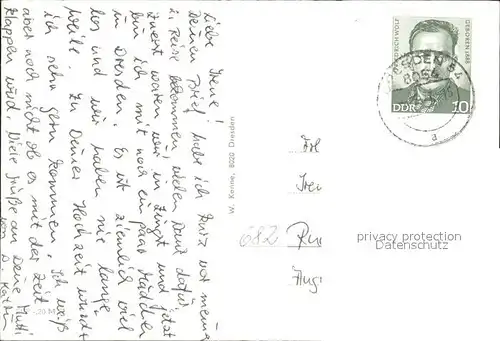 Liebe Irene!
Deinen Brief habe ich kurz vor meine
r. Reise bekommen, vielen Dank dafür
Zuerst waren wir in Zingst und jetzt
bin ich mit noch ein paar Mädchen
in Dresden. Es ist ziemlich viel
los und wir haben nie lange-
weile. Zu Deiner Hochzeit würde
ich sehr gern kommen. Ich weiß
aber noch nicht ob es mit der Zeit
klappen wird. Viele Grüße an Deine Mutti
von
W. Kenne, 8020 Dresden
GEBOREN 1888
DRESDEN
8055
DDR 10
a
682
privacy protection
Datenschutz